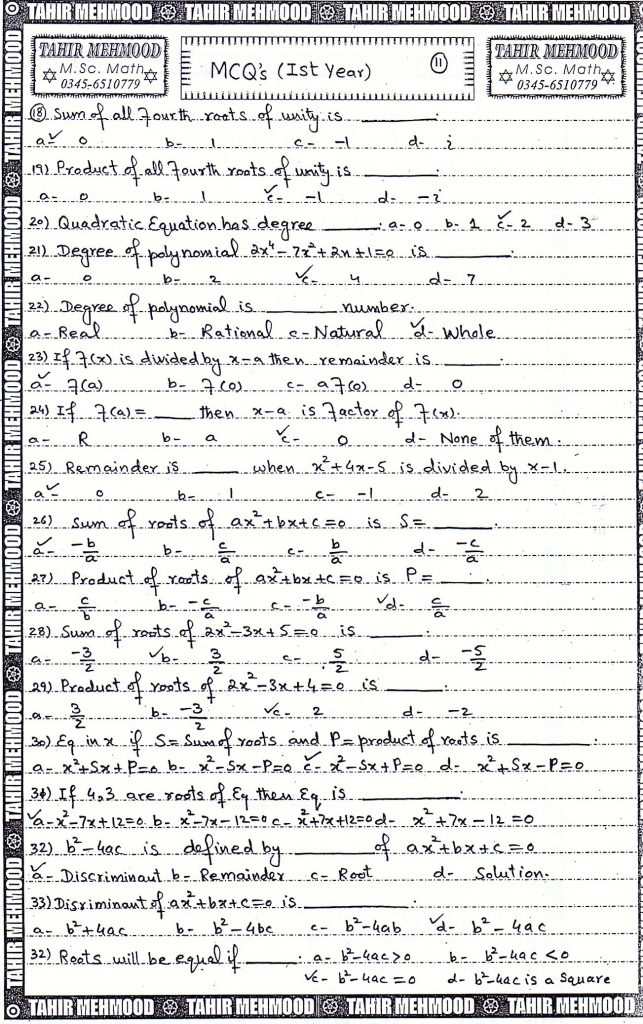 TAHIR MEHMOOD TAHIR MEHMOOD TAHIR MEHMOOD TAHIR MEHMOOD
TAHIR MEHMOOD
M.Sc. Math
0345-6510779
MCQ's (Ist Year) 11
TAHIR MEHMOOD
M.Sc. Math
0345-6510779
18) Sum of all Fourth roots of unity is ______.
a- ✓ 0 b- 1 c- -1 d- i
19) Product of all Fourth roots of unity is ______.
a- 0 b- 1 ✓c- -1 d- -i
20) Quadratic Equation has degree ______: a- 0 b- 1 ✓c- 2 d- 3
21) Degree of polynomial 2x⁴ - 7x² + 2x + 1 = 0 is ______.
a- 0 b- 2 ✓c- 4 d- 7
22) Degree of polynomial is ______ number.
a- Real b- Rational c- Natural ✓d- Whole
23) If F(x) is divided by x-a then remainder is ______.
✓a- F(a) b- F(0) c- aF(0) d- 0
24) If F(a) = ____ then x-a is Factor of F(x).
a- R b- a ✓c- 0 d- None of them.
25) Remainder is ____ when x²+4x-5 is divided by x-1.
a- ✓ 0 b- 1 c- -1 d- 2
26) Sum of roots of ax²+bx+c=0 is S= ______.
✓a- -b/a b- c/a c- b/a d- -c/a
27) Product of roots of ax²+bx+c=0 is P= ____.
a- c/b b- -c/a c- -b/a ✓d- c/a
28) Sum of roots of 2x²-3x+5=0 is ______.
a- -3/2 ✓b- 3/2 c- 5/2 d- -5/2
29) Product of roots of 2x²-3x+4=0 is ______.
a- 3/2 b- -3/2 ✓c- 2 d- -2
30) Eq in x if S= Sum of roots and P= product of roots is ______.
a- x²+Sx+P=0 b- x²-Sx-P=0 ✓c- x²-Sx+P=0 d- x²+Sx-P=0
31) If 4,3 are roots of Eq then Eq is ______.
✓a- x²-7x+12=0 b- x²-7x-12=0 c- x²+7x+12=0 d- x²+7x-12=0
32) b²-4ac is defined by ______ of ax²+bx+c=0
✓a- Discriminant b- Remainder c- Root d- Solution.
33) Disriminant of ax²+bx+c=0 is ______.
a- b²+4ac b- b²-4bc c- b²-4ab ✓d- b²-4ac
32) Roots will be equal if ____. a- b²-4ac>0 b- b²-4ac<0
✓c- b²-4ac=0 d- b²-4ac is a Square
TAHIR MEHMOOD TAHIR MEHMOOD TAHIR MEHMOOD TAHIR MEHMOOD